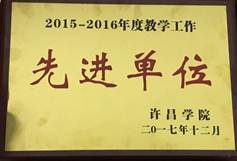 2015-2016年度教学工作
先进单位
许昌学院
二〇一七年十二月